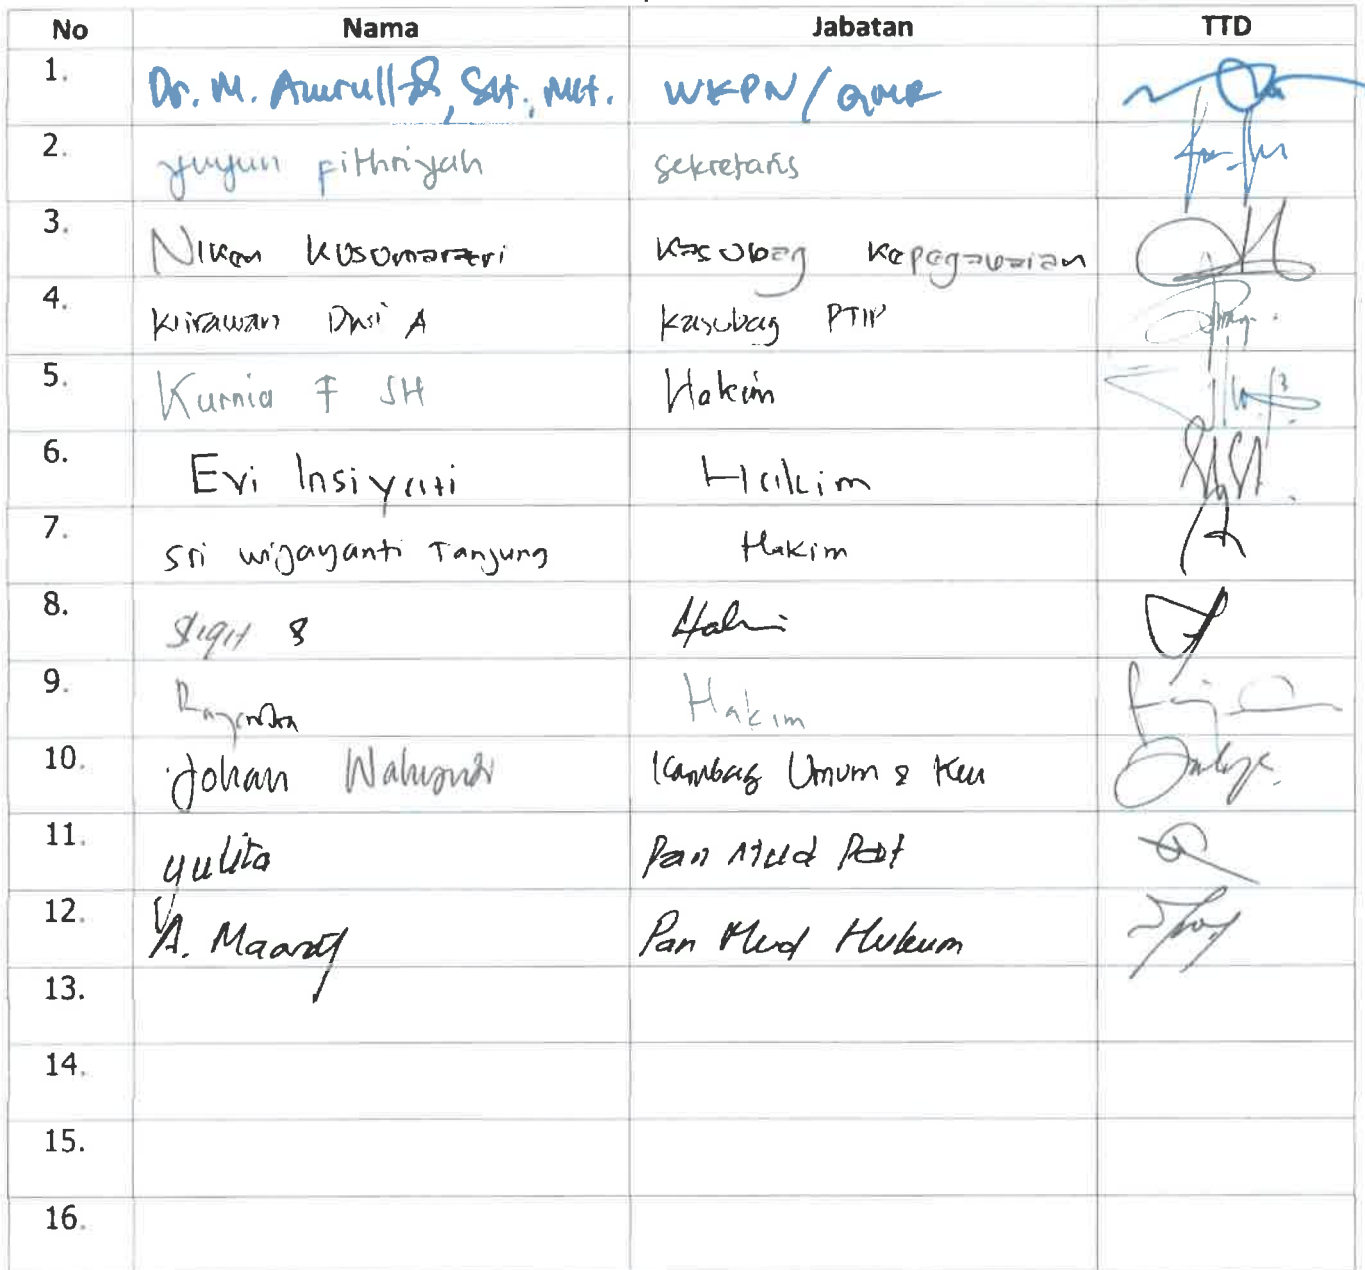 No Nama Jabatan TTD
1. Dr. M. Amrull, SH., MH. WKPN/QMR
2. yuyun fithriyah sekretaris
3. Niken Kusumarari Kasubag Kepegawaian
4. Kurawan A Kasubag PTIP
5. Kurnia F SH Hakim
6. Evi Insiyati Hakim
7. Sri wijayanti Tanjung Hakim
8. Sigit S Hakim
9. Rajendra Hakim
10. Johan Wahyudi Kasubag Umum & Keu
11. yulita Pan Mud
12. A. Maarif Pan Mud Hukum
13.
14.
15.
16.